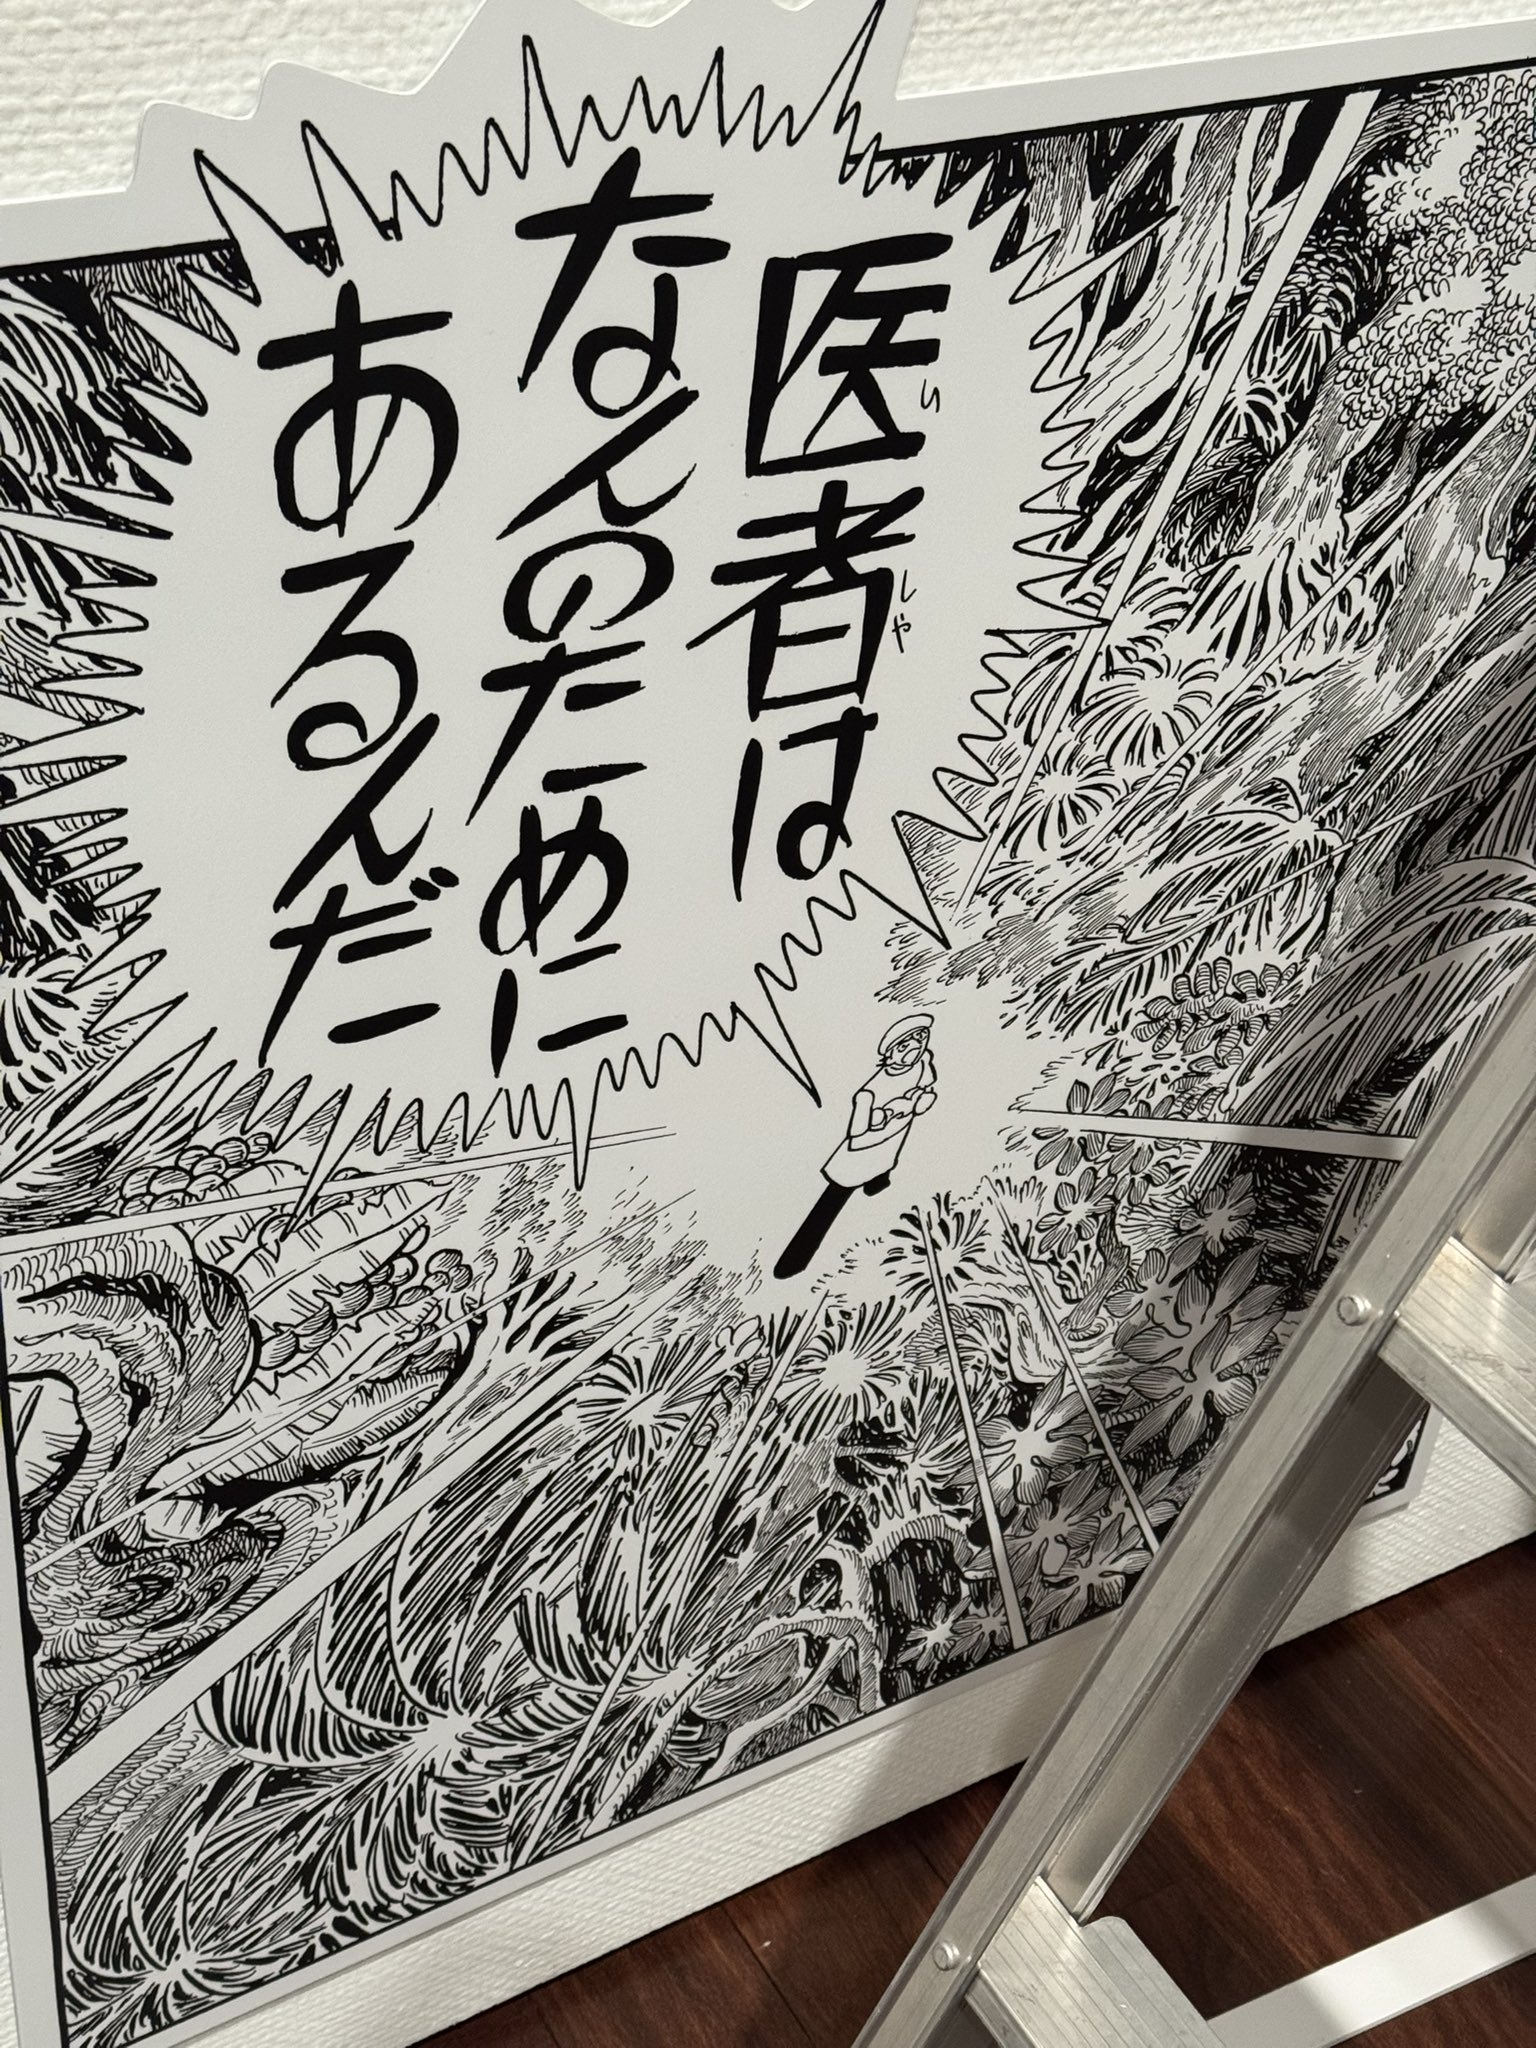 医者は
なんのために
あるんだ
いしゃ